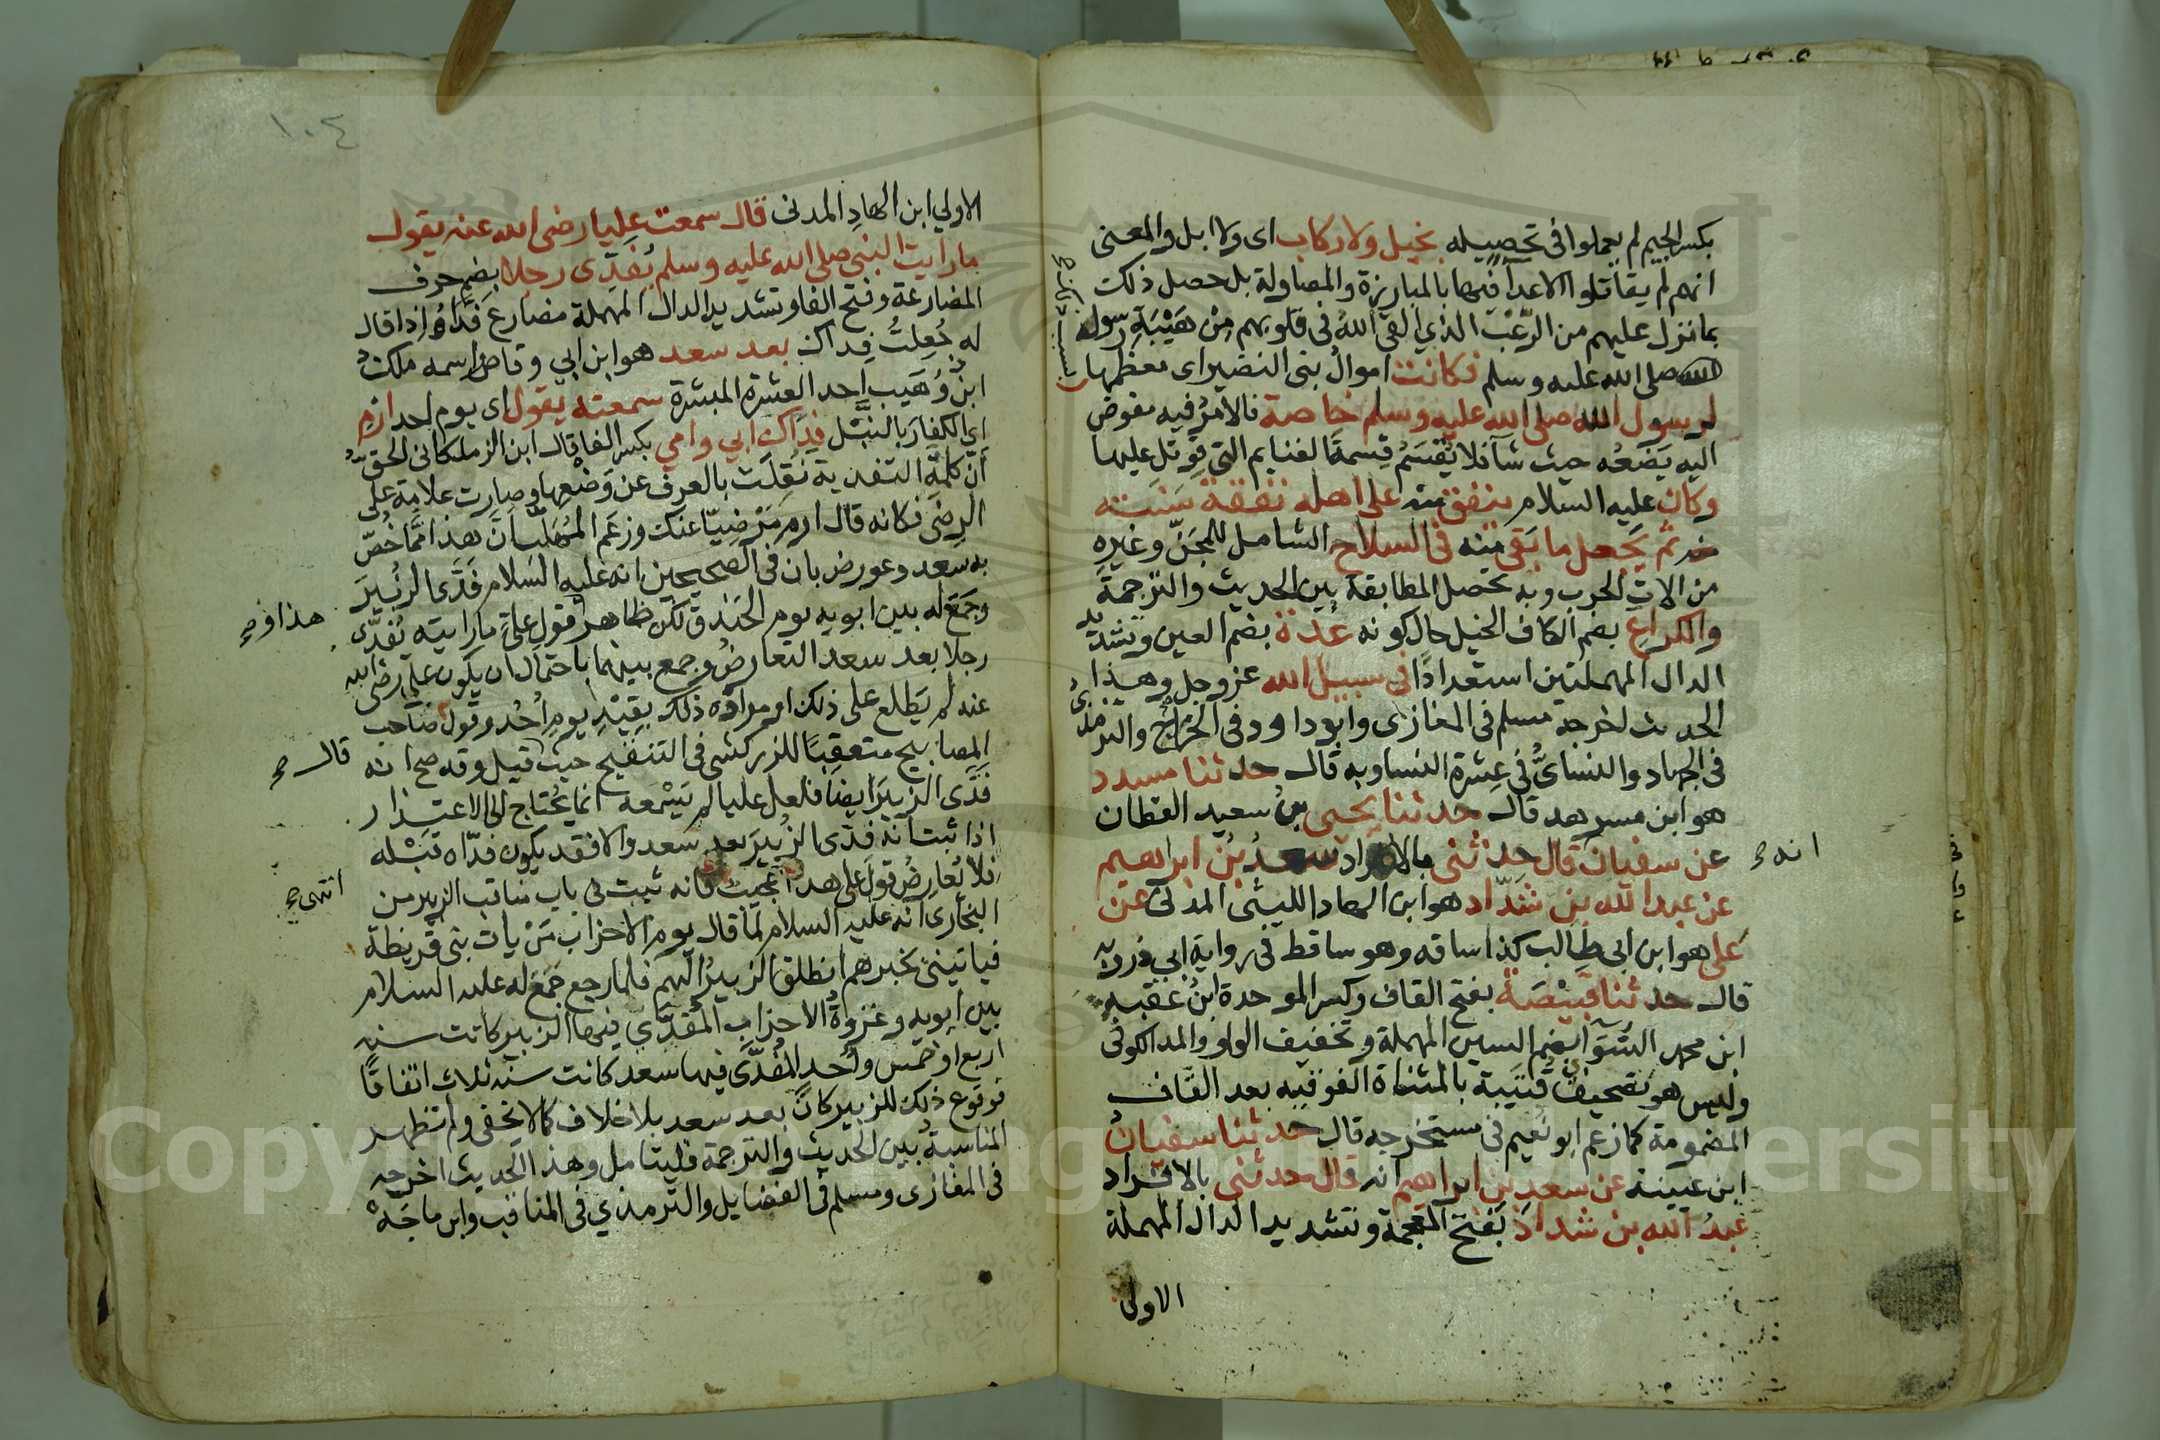 بكسر الجيم لم يعملوا في تحصيله بخيل ولا ركاب اى ولا ابل والمعنى
انهم لم يقاتلوا الاعدا فيها بالمبارزة والمصاولة بل حصل ذلك
بما نزل عليهم من الرعب الذي القى الله في قلوبهم من هيبة رسوله
صلى الله عليه وسلم فكانت اموال بنى النضير اى معظمها
لرسول الله صلى الله عليه وسلم خاصة فالامر فيه مفوض
اليه يضعه حيث شآ فلا يقسم قسمة الغنايم التي قوتل عليها
وكان عليه السلام ينفق منه على اهله نفقة سنته
ثم يجعل ما بقى منه في السلاح الشامل للمجن وغيره
من الات الحرب وبه تحصل المطابقة بين الحديث والترجمة
والكراع بضم الكاف الخيل حال كونه عدة بضم العين وتشديد
الدال المهملتين استعدادا في سبيل الله عز وجل وهذا
الحديث اخرجه مسلم في المغازى وابو داود في الخراج والترمذي
في الجهاد والنساى في عشرة النسا وبه قال حدثنا مسدد
هو ابن مسرهد قال حدثنا يحيى بن سعيد القطان
عن سفيان قال حدثني بالافراد سعد بن ابراهيم
انه صح
عن عبد الله بن شداد هو ابن الهاد الليثى المدنى عن
على هو ابن ابى طالب كذا ساقه وهو ساقط في رواية ابي ذر وبه
قال حدثنا قبيصة بفتح القاف وكسر الموحدة ابن عقبة
ابن محمد السوآ بضم السين المهملة وتخفيف الواو والمد الكوفى
وليس هو تصحيف قتيبة بالمثناة الفوقيه بعد القاف
المضمومة كما زعم ابو نعيم في مستخرجه قال حدثنا سفيان
ابن عيينة عن سعد بن ابراهيم انه قال حدثني بالافراد
عبد الله بن شداد بفتح المعجمة وتشديد الدال المهملة
الاولى
١٠٤
الاولي ابن الهاد المدنى قال سمعت عليا رضى الله عنه يقول
ما رايت النبي صلى الله عليه وسلم يُفدّى رجلا بضم حرف
المضارعة وفتح الفا وتشديد الدال المهملة مضارع فداه اذا قال
له جُعلتُ فداك بعد سعد هو ابن ابي وقاص اسمه ملك
ابن وُهَيب احد العشرة المبشرة سمعته يقول اى يوم احد ارم
اي الكفار بالنبل فداك ابي وامي بكسر الفا قال ابن الزملكانى الحق
ان كلمة التفدية نُقِلَت بالعرف عن وضعها وصارت علامة على
الرضى فكانه قال ارم مرضيا عنك وزعم المهلب ان هذا مما خُصّ
به سعد وعورض بان في الصحيحين انه عليه السلام فدى الزبير
وجمع له بين ابويه يوم الخندق لكن ظاهر قول على ما رايته يُفدّى
هذا وصح
رجلا بعد سعد التعارض وجمع بينهما باحتمال ان يكون على رضى الله
عنه لم يطلع على ذلك او مراده ذلك بقيد يوم احد وقول صاحب
المصابيح متعقبا للزركشى في التنقيح حيث قيل وقد صح انه
قال صح
فدى الزبير ايضا فلعل عليا لم يسمعه انما يحتاج الى الاعتذار
اذا ثبت انه فدى الزبير بعد سعد والا فقد يكون فداه قبله
فلا يُعارض قول على هذا عجيب فانه ثبت في باب مناقب الزبير من
انتهى صح
البخارى انه عليه السلام لما قال يوم الاحزاب مَن يات بنى قريظة
فياتينى بخبرهم انطلق الزبير اليهم فلما رجع جمع له عليه السلام
بين ابويه وغزوة الاحزاب المُفدّى فيها الزبير كانت سنة
اربع او خمس وأُحد المُفدّى فيها سعد كانت سنة ثلاث اتفاقا
فوقوع ذلك للزبير كان بعد سعد بلا خلاف كما لا يخفى ولم تظهر
المناسبة بين الحديث والترجمة فليتامل وهذا الحديث اخرجه
في المغازى ومسلم في الفضايل والترمذي في المناقب وابن ماجة